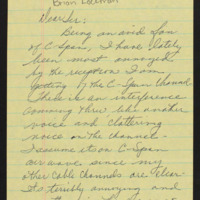 Brian
Dear Sir:
Being an avid fan
of C-Span, I have lately
been most annoyed
by the reception I am
getting of the C-Span Channel.
There is an interference
coming thru like another
voice and clattering
noise on the channel -
I assume it on C-Span
air wave since my
other cable channels are clear.
Its terribly annoying and